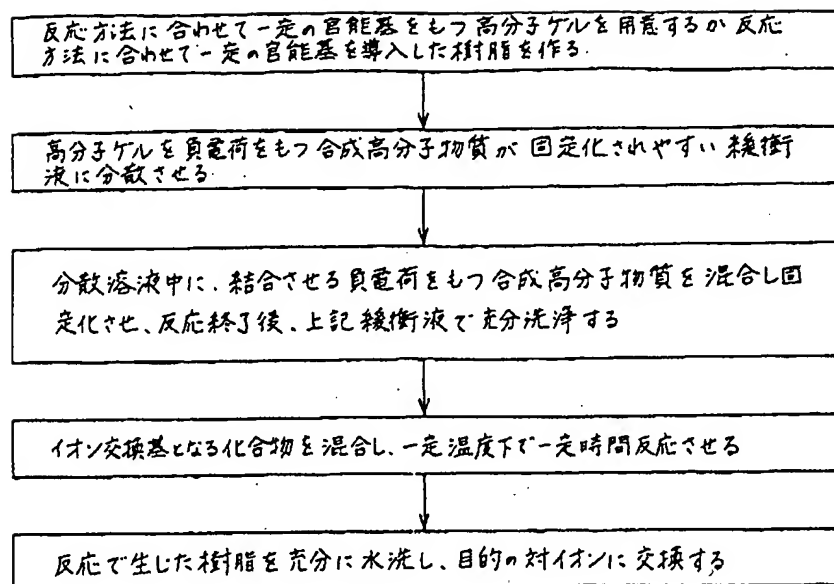 反応方法に合わせて一定の官能基をもつ高分子ゲルを用意するか反応
方法に合わせて一定の官能基を導入した樹脂を作る.
高分子ゲルを負電荷をもつ合成高分子物質が固定化されやすい緩衝
液に分散させる.
分散溶液中に、結合させる負電荷をもつ合成高分子物質を混合し固
定化させ、反応終了後、上記緩衝液で充分洗浄する
イオン交換基となる化合物を混合し、一定温度下で一定時間反応させる
反応で生じた樹脂を充分に水洗し、目的の対イオンに交換する